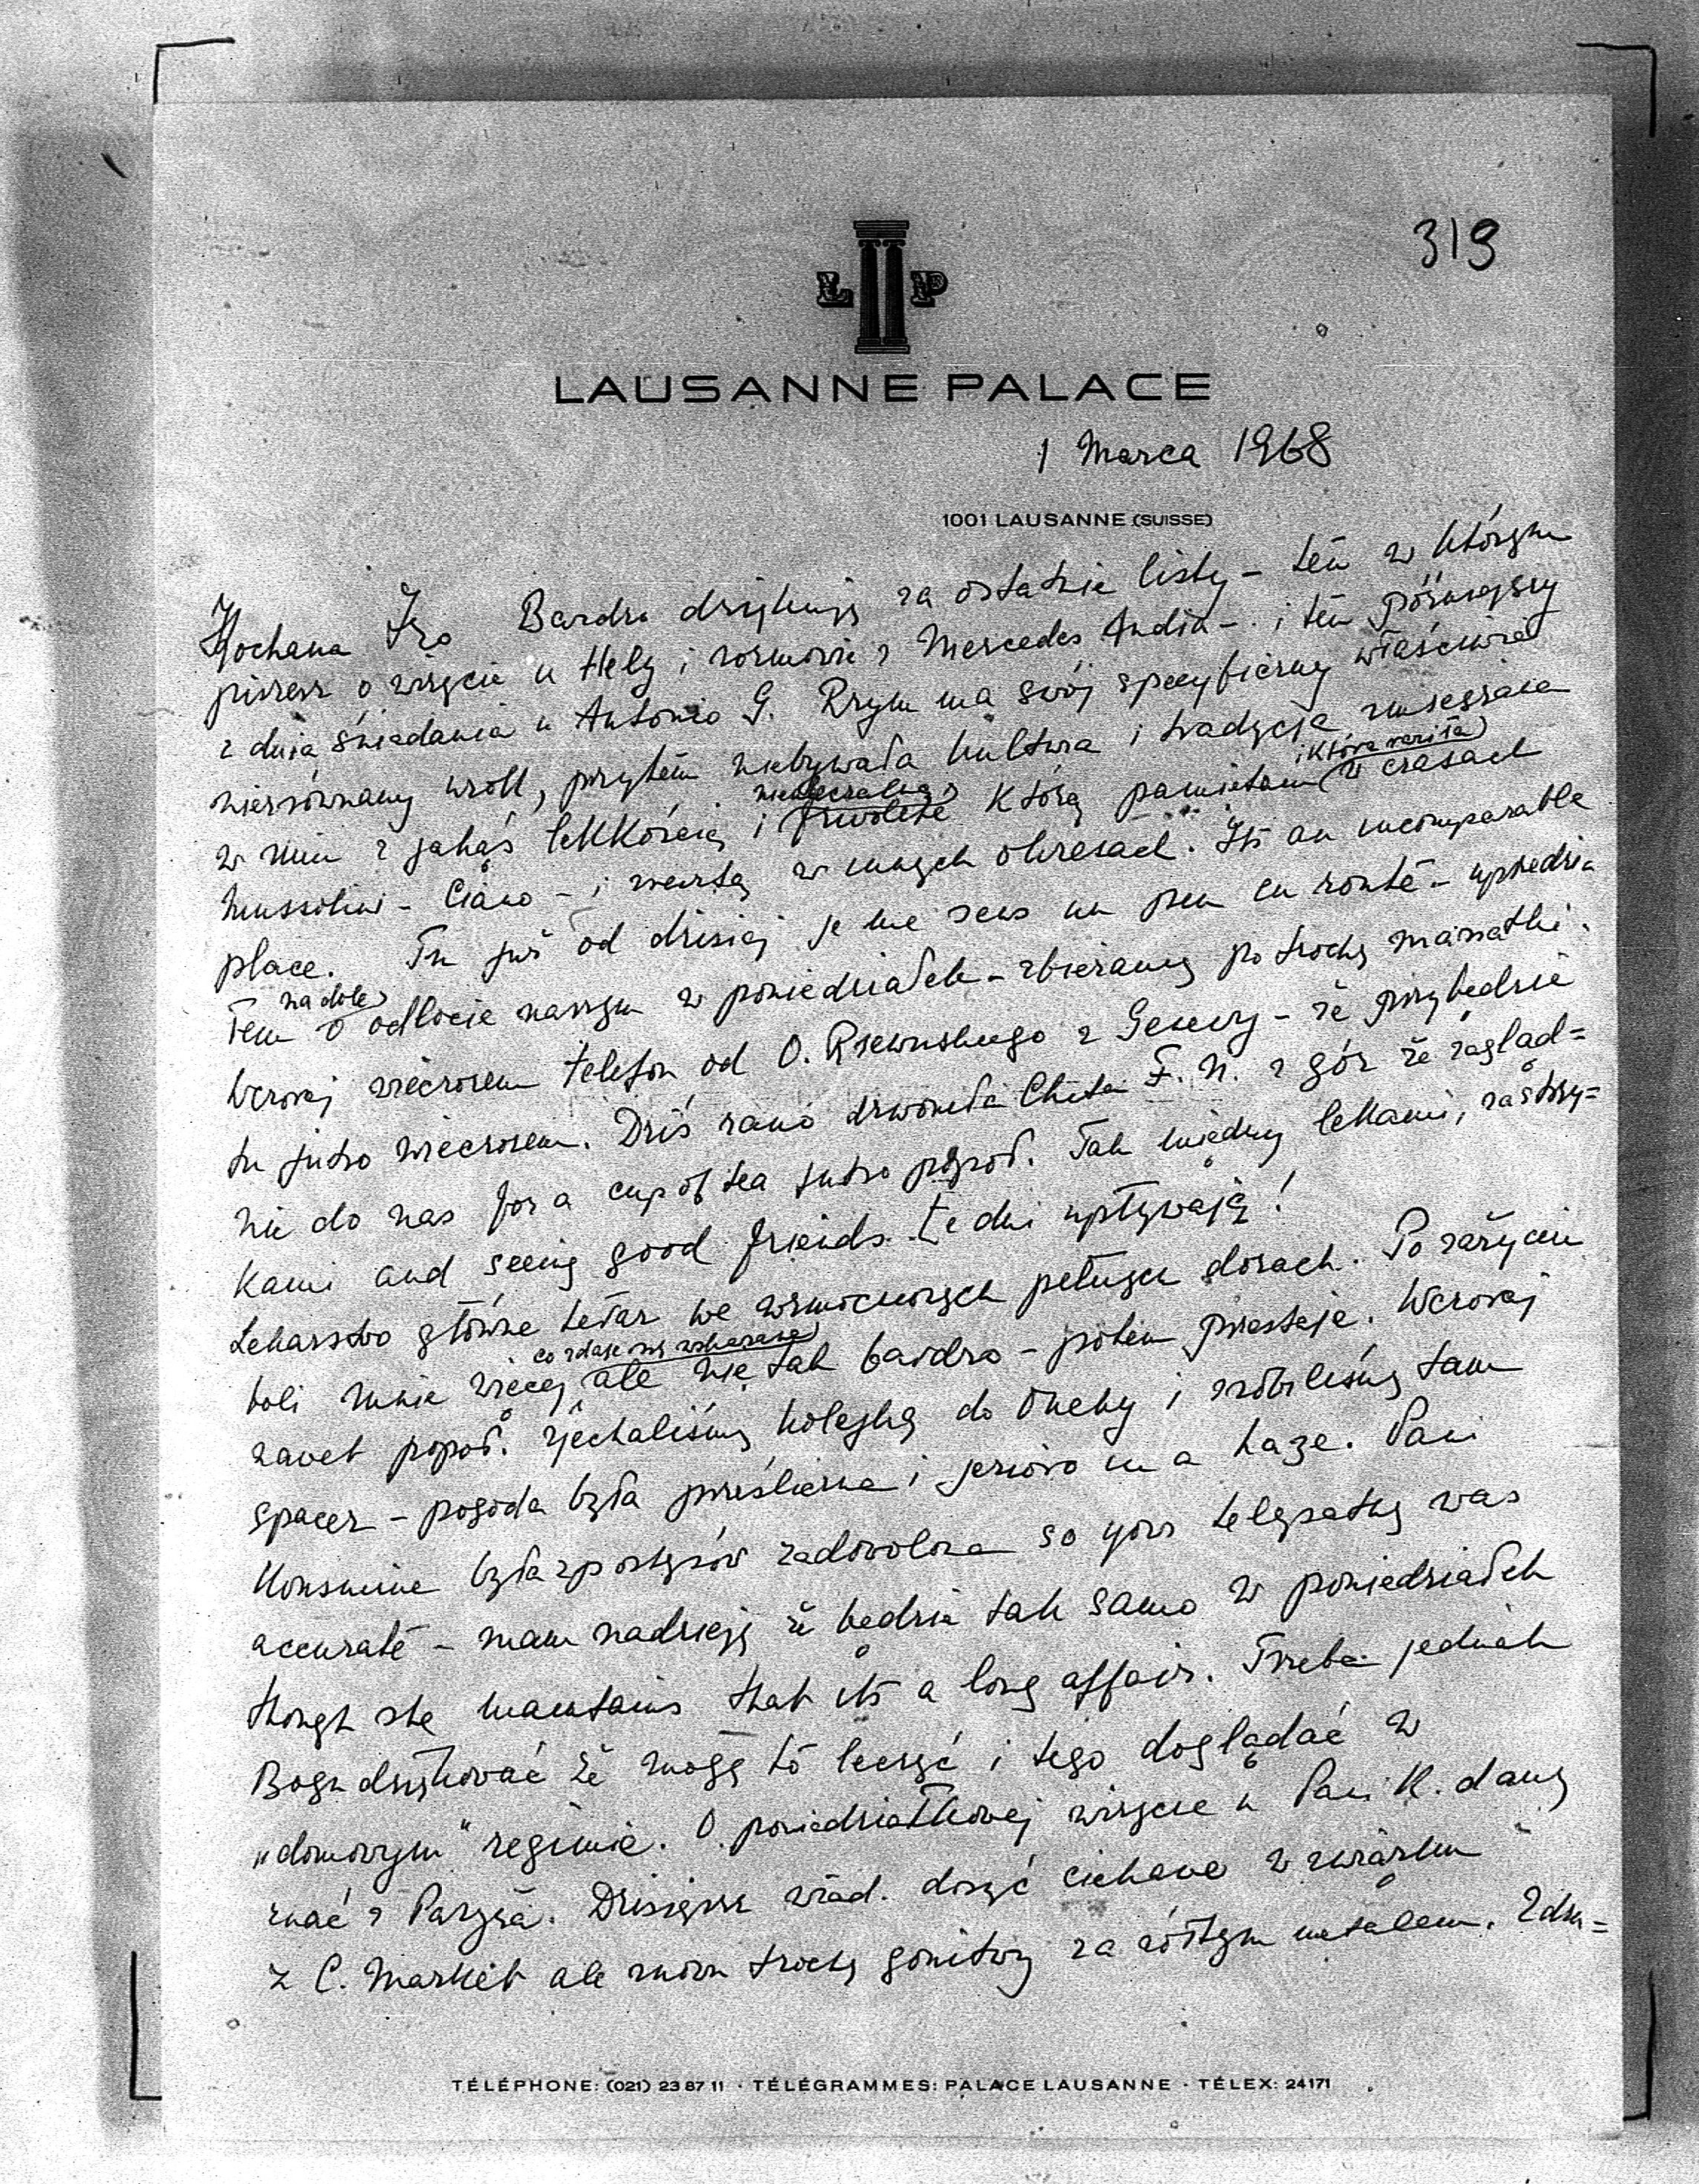 319
L P
LAUSANNE PALACE
1 Marca 1968
1001 LAUSANNE (SUISSE)
Kochana Izo Bardzo dziękuję za ostatnie listy – ten w którym
piszesz o wizycie u Hely i rozmowie z Mercedes – i ten późniejszy
z dnia śniadania u Antonio G. Rzym ma swój specyficzny właściwie
niezrównany urok, przytem niebywała kultura i tradycja zmieszana
w nim z jakąś lekkością i
która raziła
którą pamiętam w czasach
Mussolini – Ciano – i zresztą w innych okresach. Its an incomparable
place. Tu już od dzisiaj je me sens un peu en route – uprzedzi
na dole
tem o odlocie naszym w poniedziałek – zbieramy po trochę manatki.
Wczoraj wieczorem telefon od O. Rzewuskiego z Genewy – że przybędzie
tu jutro wieczorem. Dziś rano dzwoniła F. N. z gór że zagląd=
nie do nas for a cup of tea jutro popoł. Tak między lekami, zastrzy=
kami and seeing good friends te dni upływają!
Lekarstwo główne teraz we wzmocnionych pełnych dozach. Po zażyciu
co zdaje się wskazane
boli mnie więcej ale nie tak bardzo – potem przestaje. Wczoraj
nawet popoł. zjechaliśmy kolejką do Ouchy i zrobiliśmy tam
spacer – pogoda była prześliczna i jezioro in a haze. Pani
była z postępów zadowolona so your telepathy was
accurate – mam nadzieję że będzie tak samo w poniedziałek
though she maintains that its a long affair. Trzeba jednak
Bogu dziękować że mogę to leczyć i tego doglądać w
„domowym" regimie. O poniedziałkowej wizycie u Pani K. damy
znać z Paryża. Dzisiejsze wiad. dosyć ciekawe w związku
z C. Market ale znowu trochę gonitwy za żółtym metalem. Zdra=
TÉLÉPHONE: (021) 23 87 11 · TÉLÉGRAMMES: PALACE LAUSANNE · TÉLEX: 24171